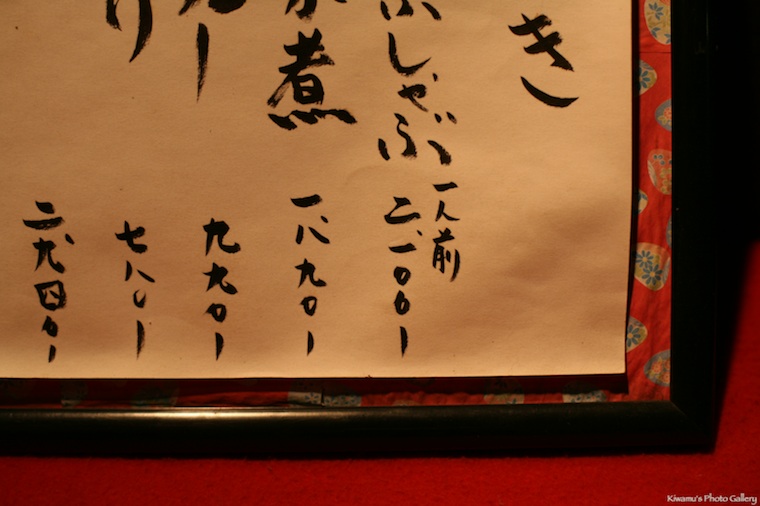 き
ぶしゃぶ 一人前 二、一〇〇ー
煮 一、八九〇ー
ー 九九〇ー
り 七八〇ー
二、九四〇ー
Kiwamu's Photo Gallery